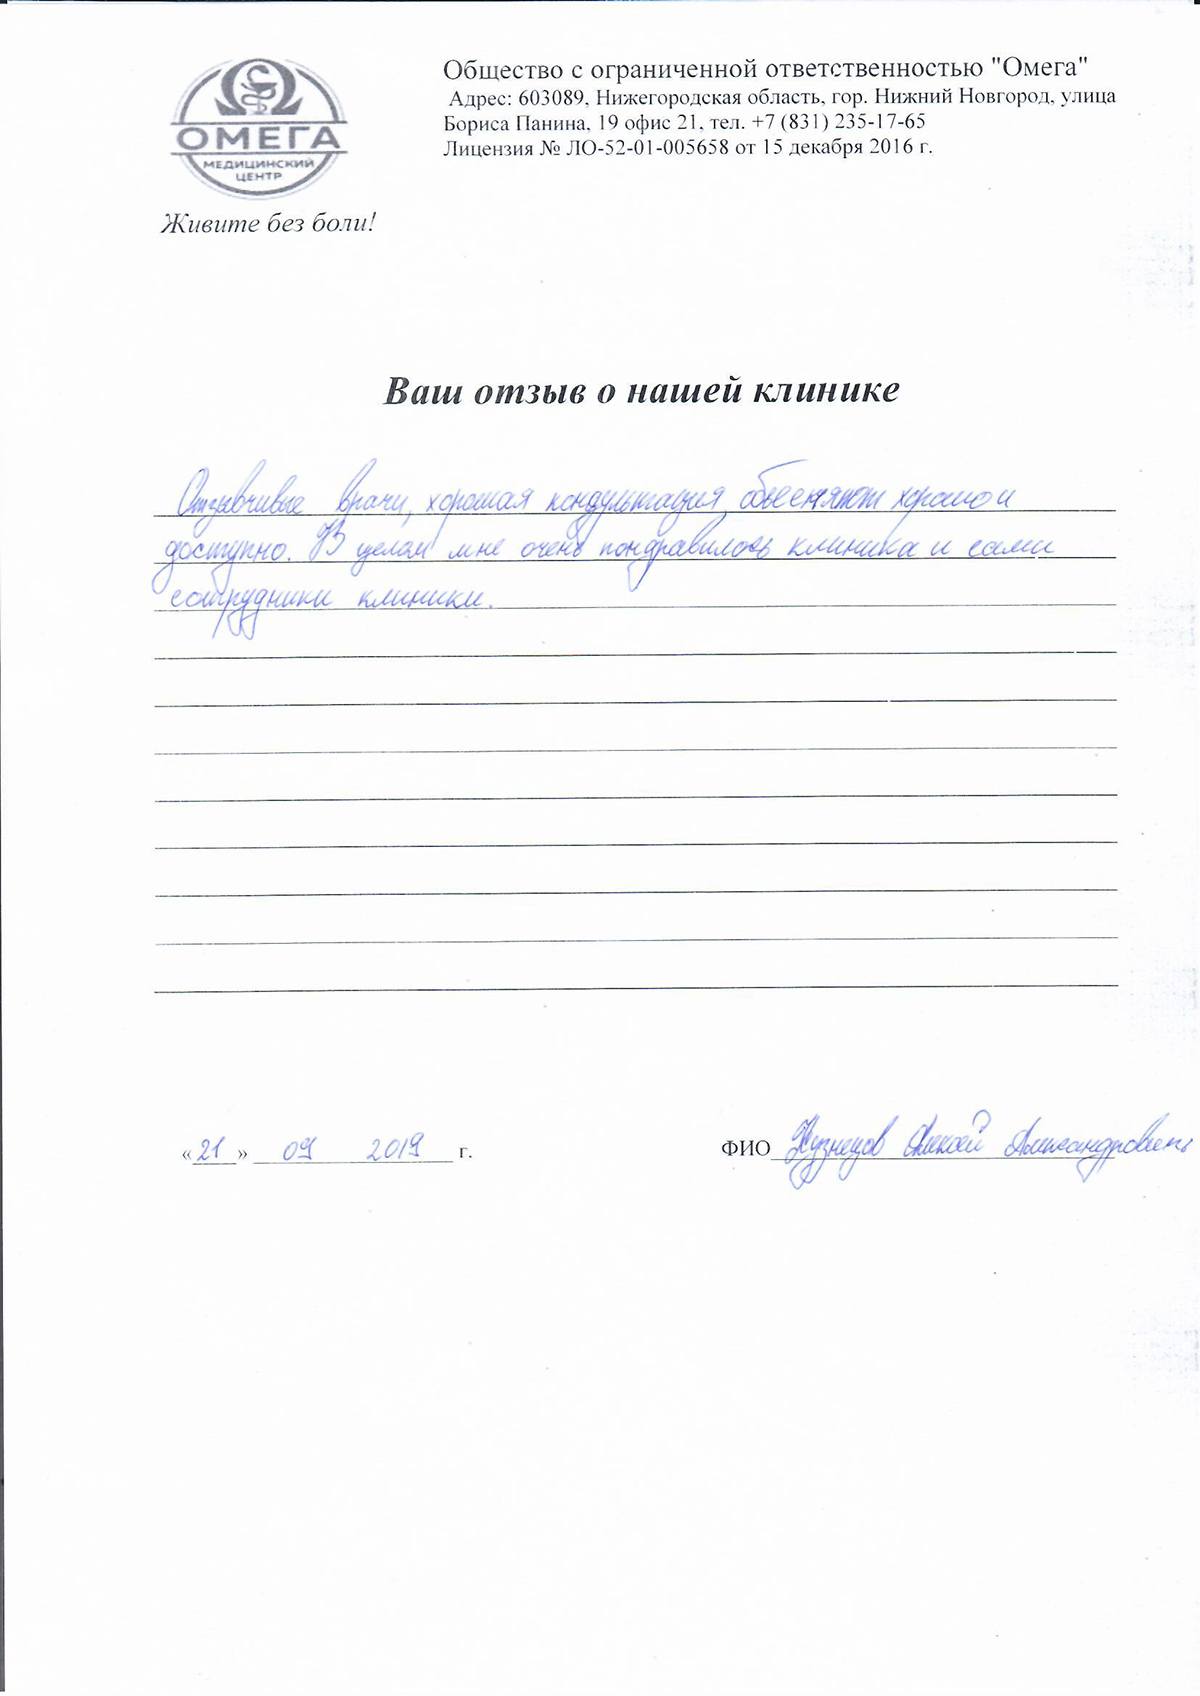 ОМЕГА
МЕДИЦИНСКИЙ
ЦЕНТР
Живите без боли!
Общество с ограниченной ответственностью "Омега"
Адрес: 603089, Нижегородская область, гор. Нижний Новгород, улица
Бориса Панина, 19 офис 21, тел. +7 (831) 235-17-65
Лицензия № ЛО-52-01-005658 от 15 декабря 2016 г.
Ваш отзыв о нашей клинике
Отзывчивые врачи, хорошая кондультация, объесняют хорошо и
доступно. В целом мне очень пондравилось клиника и сами
сотрудники клиники.
«21» 09 2019 г.
ФИО Кузнецов Алексей Александрович